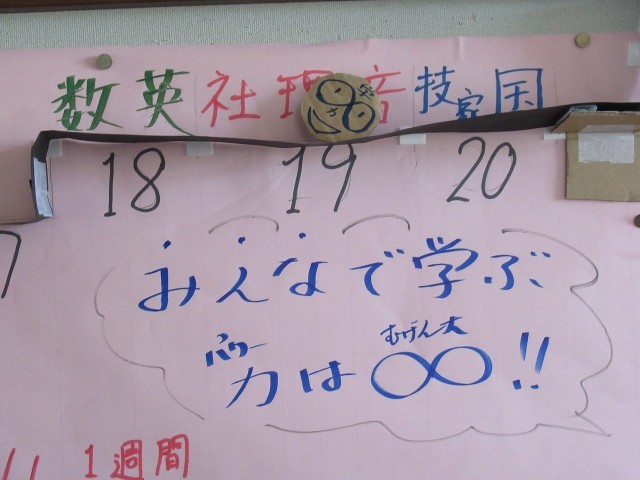 数英 社理音 技家国
18 19 20
みんなで学ぶ
パワー
むげん大
力は∞!!
1週間